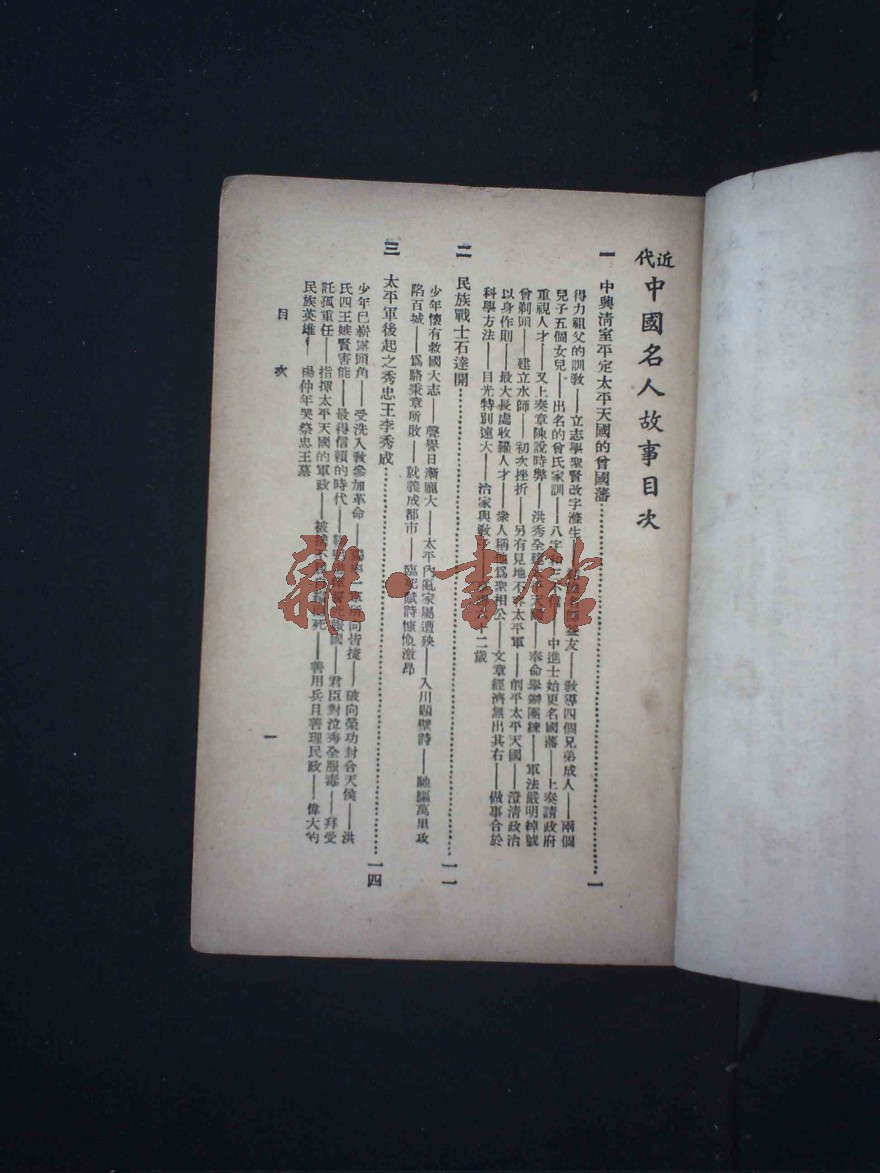 近代中國名人故事目次
一 中興清室平定太平天國的曾國藩 一
得力祖父的訓教——立志學聖賢改字滌生——友——教導四個兄弟成人——兩個
兒子五個女兒——出名的曾氏家訓——八字 中進士始更名國藩——上奏請政府
重視人才——又上奏章陳說時弊——洪秀全 奉命舉辦團練——軍法嚴明綽號
曾剃頭——建立水師——初次挫折——另有見地不 太平軍——削平太平天國——澄清政治
以身作則——最大長處收羅人才——衆人稱 爲聖相公——文章經濟無出其右——做事合於
科學方法——目光特別遠大——治家與 十二歲
二 民族戰士石達開 一一
少年懷有救國大志——聲譽日漸龐大——太平內亂家屬遭殃——入川題壁詩——馳驅萬里攻
陷百城——爲駱秉章所敗——就義成都市——臨死賦詩慷慨激昂
三 太平軍後起之秀忠王李秀成 一四
少年已嶄露頭角——受洗入教參加革命—— 所向皆捷——破向榮功封合天侯——洪
氏四王嫉賢害能——最得信賴的時代—— 國——君臣對泣秀全服毒——拜受
託孤重任——指揮太平天國的軍政——被 死——善用兵且善理民政——偉大的
民族英雄——楊仲年哭祭忠王墓
目 次
一
雜·書館